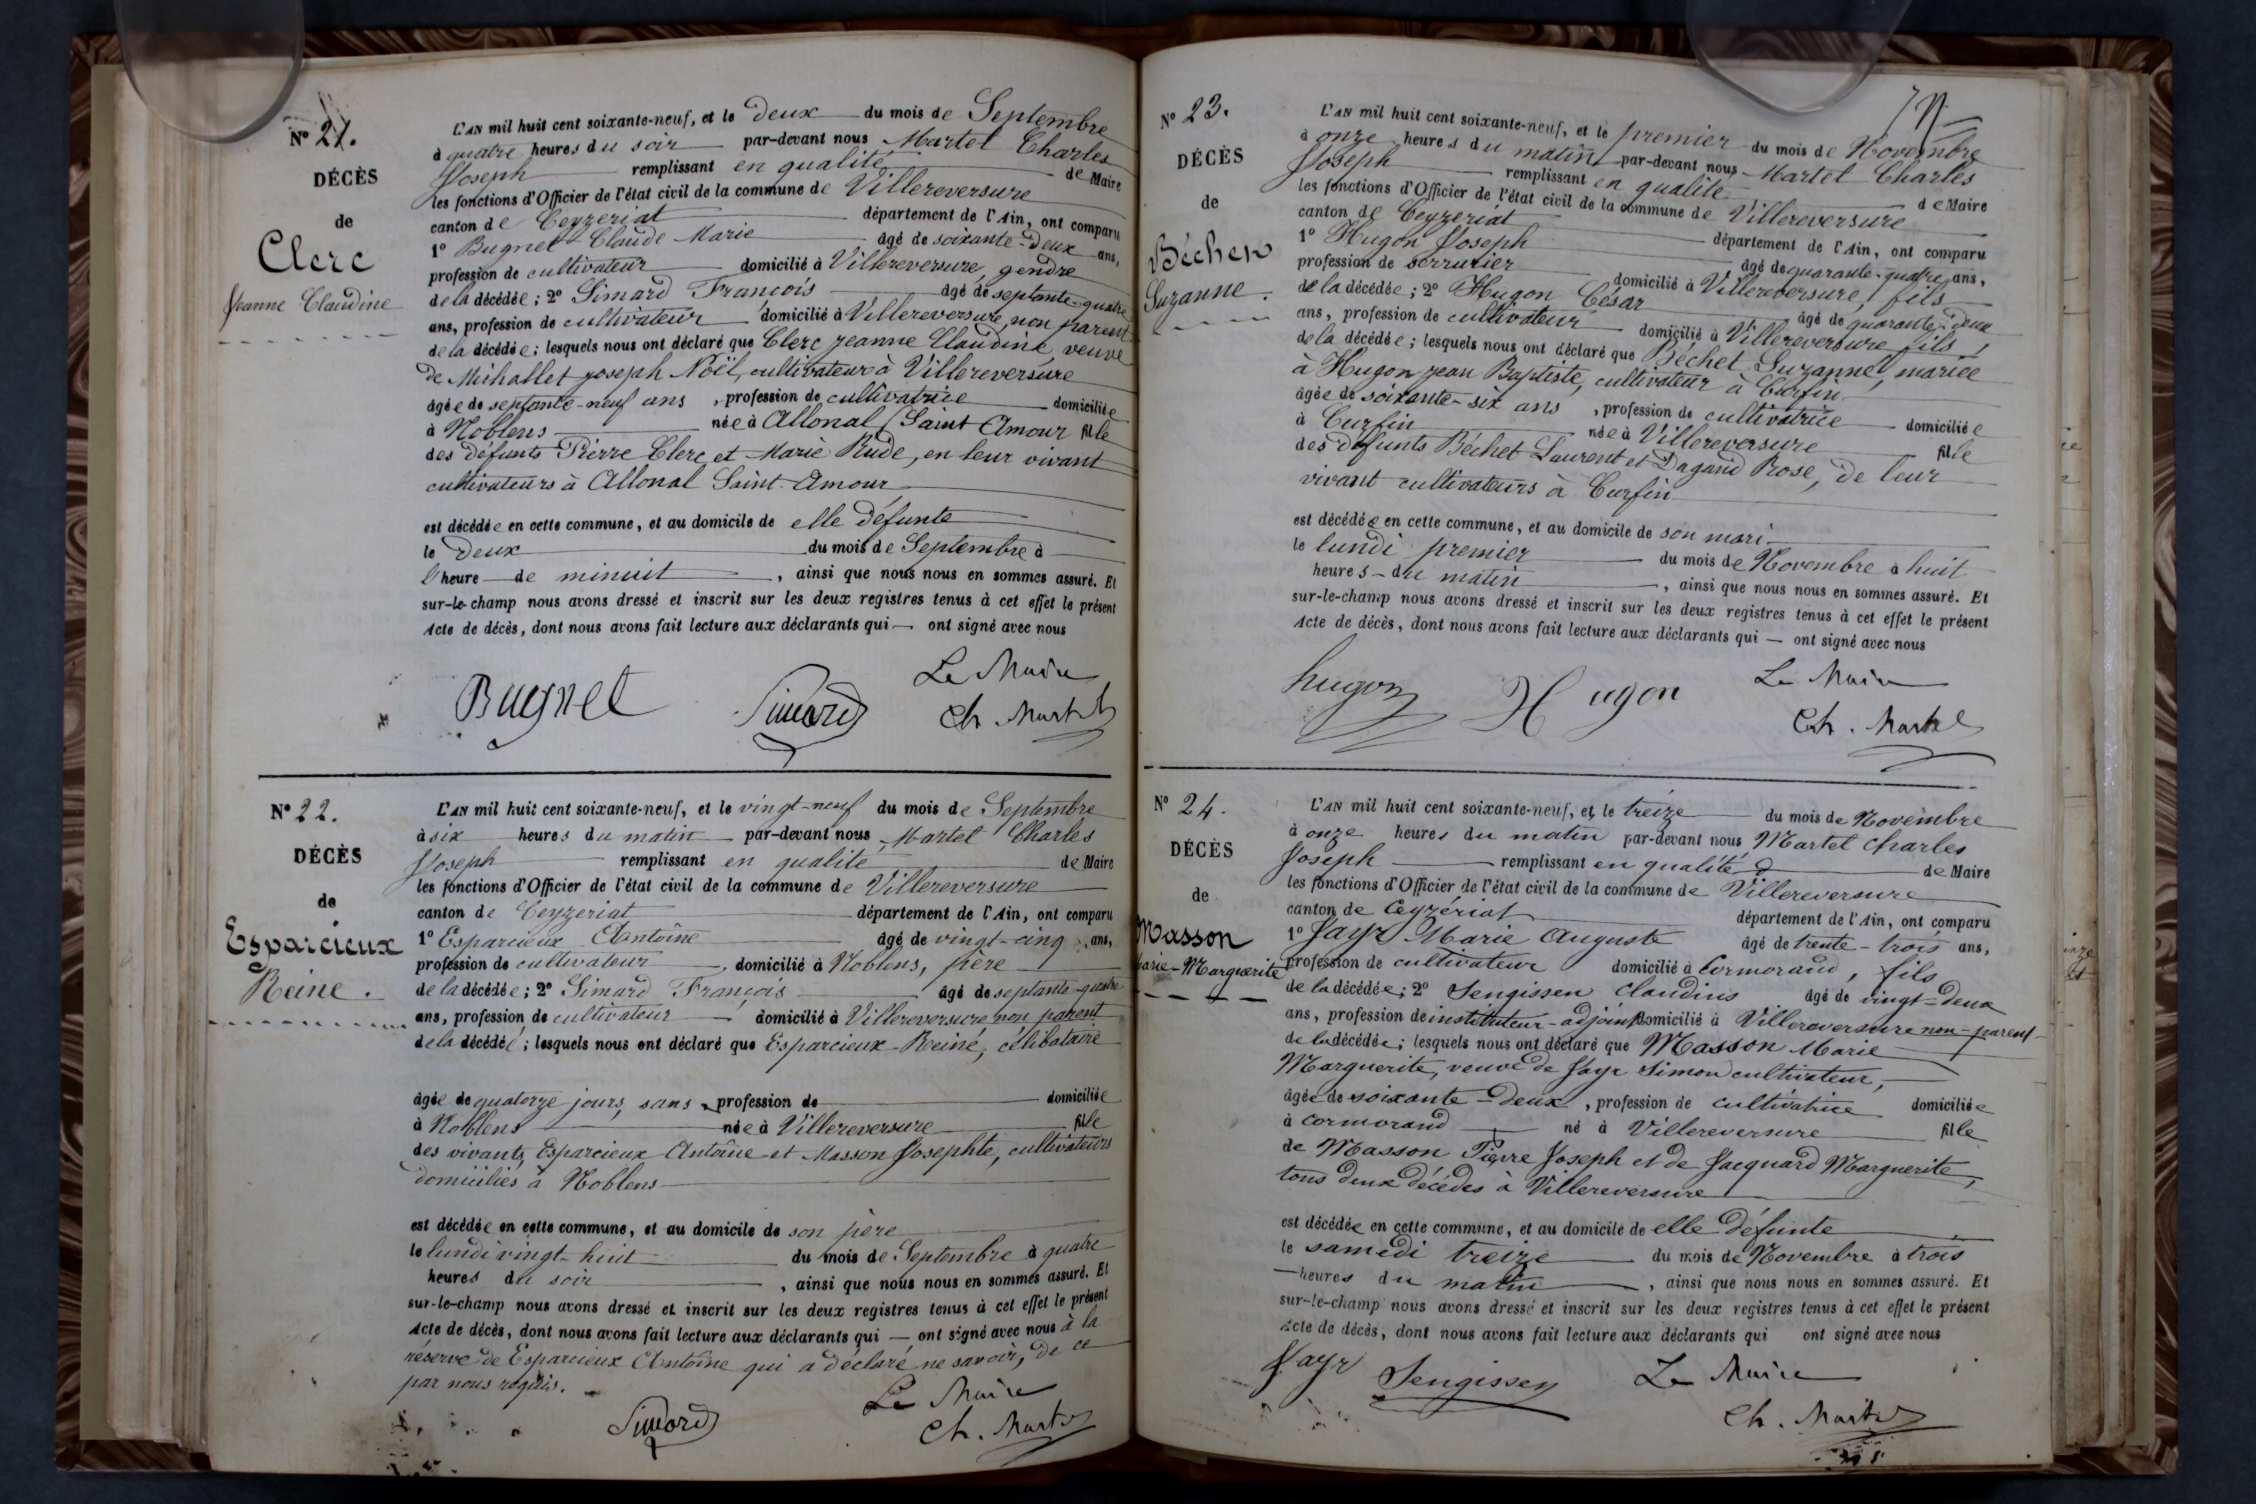 N° 21.
DÉCÈS
de
Clerc
Jeanne Claudine
L'AN mil huit cent soixante-neuf, et le deux du mois de Septembre
à quatre heures du soir par-devant nous Martel Charles
Joseph remplissant en qualité de Maire
les fonctions d'Officier de l'état civil de la commune de Villereversure
canton de Ceyzeriat département de l'Ain, ont comparu
1° Bugnet Claude Marie âgé de soixante-deux ans,
profession de cultivateur domicilié à Villereversure, gendre
de la décédée; 2° Simard François âgé de septante-quatre
ans, profession de cultivateur domicilié à Villereversure, non parent
de la décédée; lesquels nous ont déclaré que Clerc Jeanne Claudine, veuve
de Michallet Joseph Noël, cultivateur à Villereversure
âgée de septante-neuf ans, profession de cultivatrice domiciliée
à Noblens née à Allonal, Saint Amour fille
des défunts Pierre Clerc et Marie Rude, en leur vivant
cultivateurs à Allonal Saint-Amour
est décédée en cette commune, et au domicile de elle défunte
le deux du mois de Septembre à
l'heure de minuit, ainsi que nous nous en sommes assuré. Et
sur-le-champ nous avons dressé et inscrit sur les deux registres tenus à cet effet le présent
Acte de décès, dont nous avons fait lecture aux déclarants qui — ont signé avec nous
Le Maire
Bugnet Simard Ch. Martel
N° 22.
DÉCÈS
de
Esparcieux
Reine.
L'AN mil huit cent soixante-neuf, et le vingt-neuf du mois de Septembre
à six heures du matin par-devant nous Martel Charles
Joseph remplissant en qualité de Maire
les fonctions d'Officier de l'état civil de la commune de Villereversure
canton de Ceyzeriat département de l'Ain, ont comparu
1° Esparcieux Antoine âgé de vingt-cinq ans,
profession de cultivateur, domicilié à Noblens, père
de la décédée; 2° Simard François âgé de septante-quatre
ans, profession de cultivateur domicilié à Villereversure non parent
de la décédée; lesquels nous ont déclaré que Esparcieux Reine, célibataire
âgée de quatorze jours, sans profession de domiciliée
à Noblens née à Villereversure fille
des vivants Esparcieux Antoine et Masson Josephte, cultivateurs
domiciliés à Noblens
est décédée en cette commune, et au domicile de son père
le lundi vingt-huit du mois de Septembre à quatre
heures du soir, ainsi que nous nous en sommes assuré. Et
sur-le-champ nous avons dressé et inscrit sur les deux registres tenus à cet effet le présent
Acte de décès, dont nous avons fait lecture aux déclarants qui — ont signé avec nous à la
réserve de Esparcieux Antoine qui a déclaré ne savoir, de ce
par nous requis.
Le Maire
Simard Ch. Martel
N° 23.
DÉCÈS
de
Béchet
Suzanne.
L'AN mil huit cent soixante-neuf, et le premier du mois de Novembre
à onze heures du matin par-devant nous Martel Charles
Joseph remplissant en qualité de Maire
les fonctions d'Officier de l'état civil de la commune de Villereversure
canton de Ceyzeriat département de l'Ain, ont comparu
1° Hugon Joseph âgé de quarante-quatre ans,
profession de serrurier domicilié à Villereversure, fils
de la décédée; 2° Hugon César âgé de quarante-deux
ans, profession de cultivateur domicilié à Villereversure fils
de la décédée; lesquels nous ont déclaré que Béchet Suzanne, mariée
à Hugon Jean Baptiste, cultivateur à Curfin
âgée de soixante-six ans, profession de cultivatrice domiciliée
à Curfin née à Villereversure fille
des défunts Béchet Laurent et Dagand Rose, de leur
vivant cultivateurs à Curfin
est décédée en cette commune, et au domicile de son mari
le lundi premier du mois de Novembre à huit
heures du matin, ainsi que nous nous en sommes assuré. Et
sur-le-champ nous avons dressé et inscrit sur les deux registres tenus à cet effet le présent
Acte de décès, dont nous avons fait lecture aux déclarants qui — ont signé avec nous
Le Maire
hugon Hugon Ch. Martel
N° 24.
DÉCÈS
de
Masson
Marie-Marguerite
L'AN mil huit cent soixante-neuf, et le treize du mois de Novembre
à onze heures du matin par-devant nous Martel Charles
Joseph remplissant en qualité de Maire
les fonctions d'Officier de l'état civil de la commune de Villereversure
canton de Ceyzériat département de l'Ain, ont comparu
1° Jayr Marie Auguste âgé de trente-trois ans,
profession de cultivateur domicilié à Cormorand, fils
de la décédée; 2° Sengissen Claudius âgé de vingt-deux
ans, profession de instituteur-adjoint domicilié à Villereversure non-parent
de la décédée; lesquels nous ont déclaré que Masson Marie
Marguerite, veuve de Jayr Simon cultivateur,
âgée de soixante-deux, profession de cultivatrice domiciliée
à Cormorand né à Villereversure fille
de Masson Pierre Joseph et de Jacquard Marguerite,
tous deux décédés à Villereversure
est décédée en cette commune, et au domicile de elle défunte
le samedi treize du mois de Novembre à trois
heures du matin, ainsi que nous nous en sommes assuré. Et
sur-le-champ nous avons dressé et inscrit sur les deux registres tenus à cet effet le présent
Acte de décès, dont nous avons fait lecture aux déclarants qui ont signé avec nous
Jayr Sengissen Le Maire
Ch. Martel